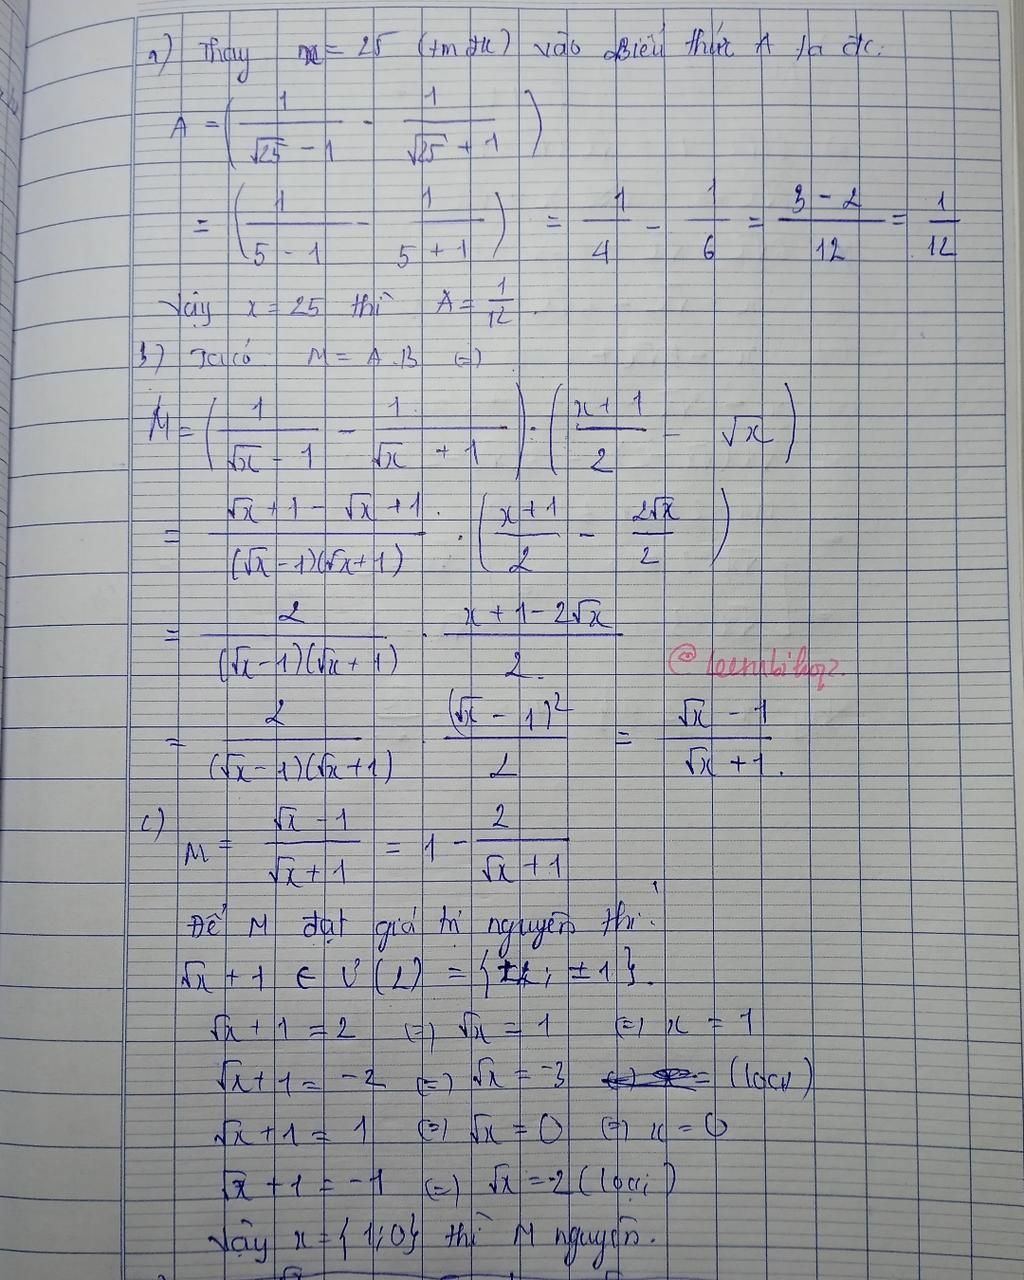 a) Thay x = 25 (tm đk) vào biểu thức A ta đc:
A = ( 1/(√25 - 1) - 1/(√25 + 1) )
= ( 1/(5 - 1) - 1/(5 + 1) ) = 1/4 - 1/6 = (3 - 2)/12 = 1/12
Vậy x = 25 thì A = 1/12.
b) Ta có M = A.B (=)
M = ( 1/(√x - 1) - 1/(√x + 1) ) . ( (x + 1)/2 - √x )
= (√x + 1 - √x + 1)/((√x - 1)(√x + 1)) . ( (x + 1)/2 - 2√x/2 )
= 2/((√x - 1)(√x + 1)) . (x + 1 - 2√x)/2
= 2/((√x - 1)(√x + 1)) . (√x - 1)²/2 = (√x - 1)/(√x + 1).
c) M = (√x - 1)/(√x + 1) = 1 - 2/(√x + 1)
Để M đạt giá trị nguyên thì:
√x + 1 ∈ Ư(2) = {±2; ±1}.
√x + 1 = 2 (=) √x = 1 (=) x = 1
√x + 1 = -2 (=) √x = -3 (loại)
√x + 1 = 1 (=) √x = 0 (=) x = 0
√x + 1 = -1 (=) √x = -2 (loại)
Vậy x = {1; 0} thì M nguyên.